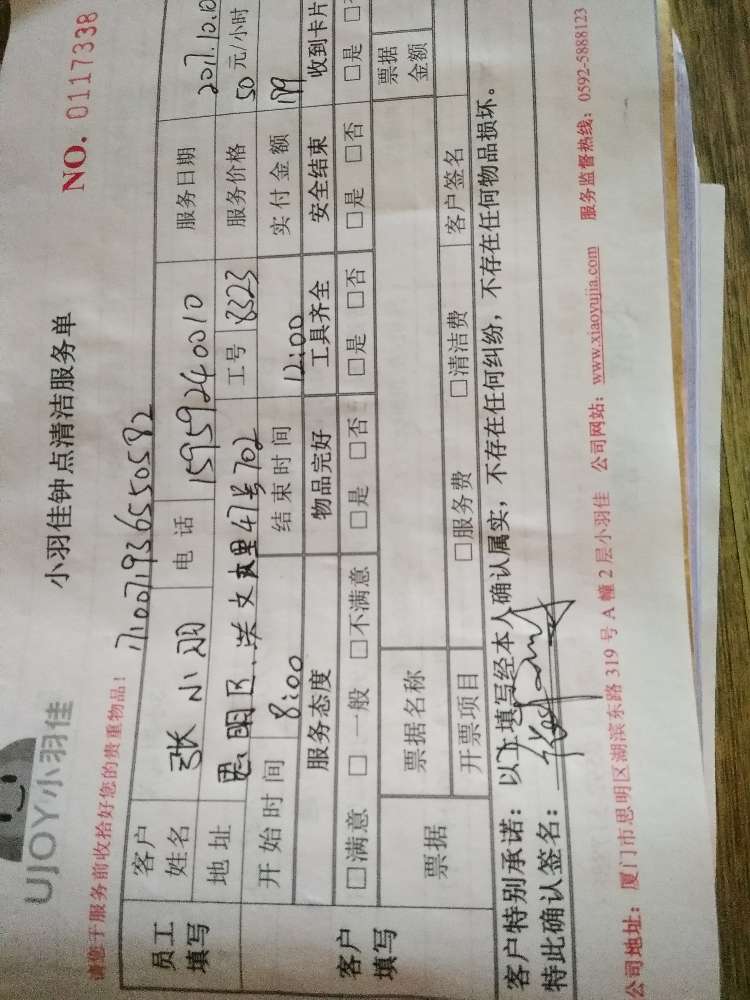 UJOY小羽佳
小羽佳钟点清洁服务单
NO. 0117338
请您于服务前收拾好您的贵重物品!
员工填写
客户姓名 张小羽 电话 15959240010 服务日期 2017.10.0
地址 思明区 洪文六里47号702 工号 8323 服务价格 50元/小时
开始时间 8:00 结束时间 12:00 实付金额 199
客户填写
服务态度 物品完好 工具齐全 安全结束 收到卡片
□满意 □一般 □不满意 □是 □否 □是 □否 □是 □否 □是
票据 票据名称 票据金额
开票项目 □服务费 □清洁费 客户签名
客户特别承诺:以上填写经本人确认属实,不存在任何纠纷,不存在任何物品损坏。
特此确认签名:
公司地址:厦门市思明区湖滨东路319号A幢2层小羽佳 公司网站:www.xiaoyujia.com 服务监督热线:0592-5888123